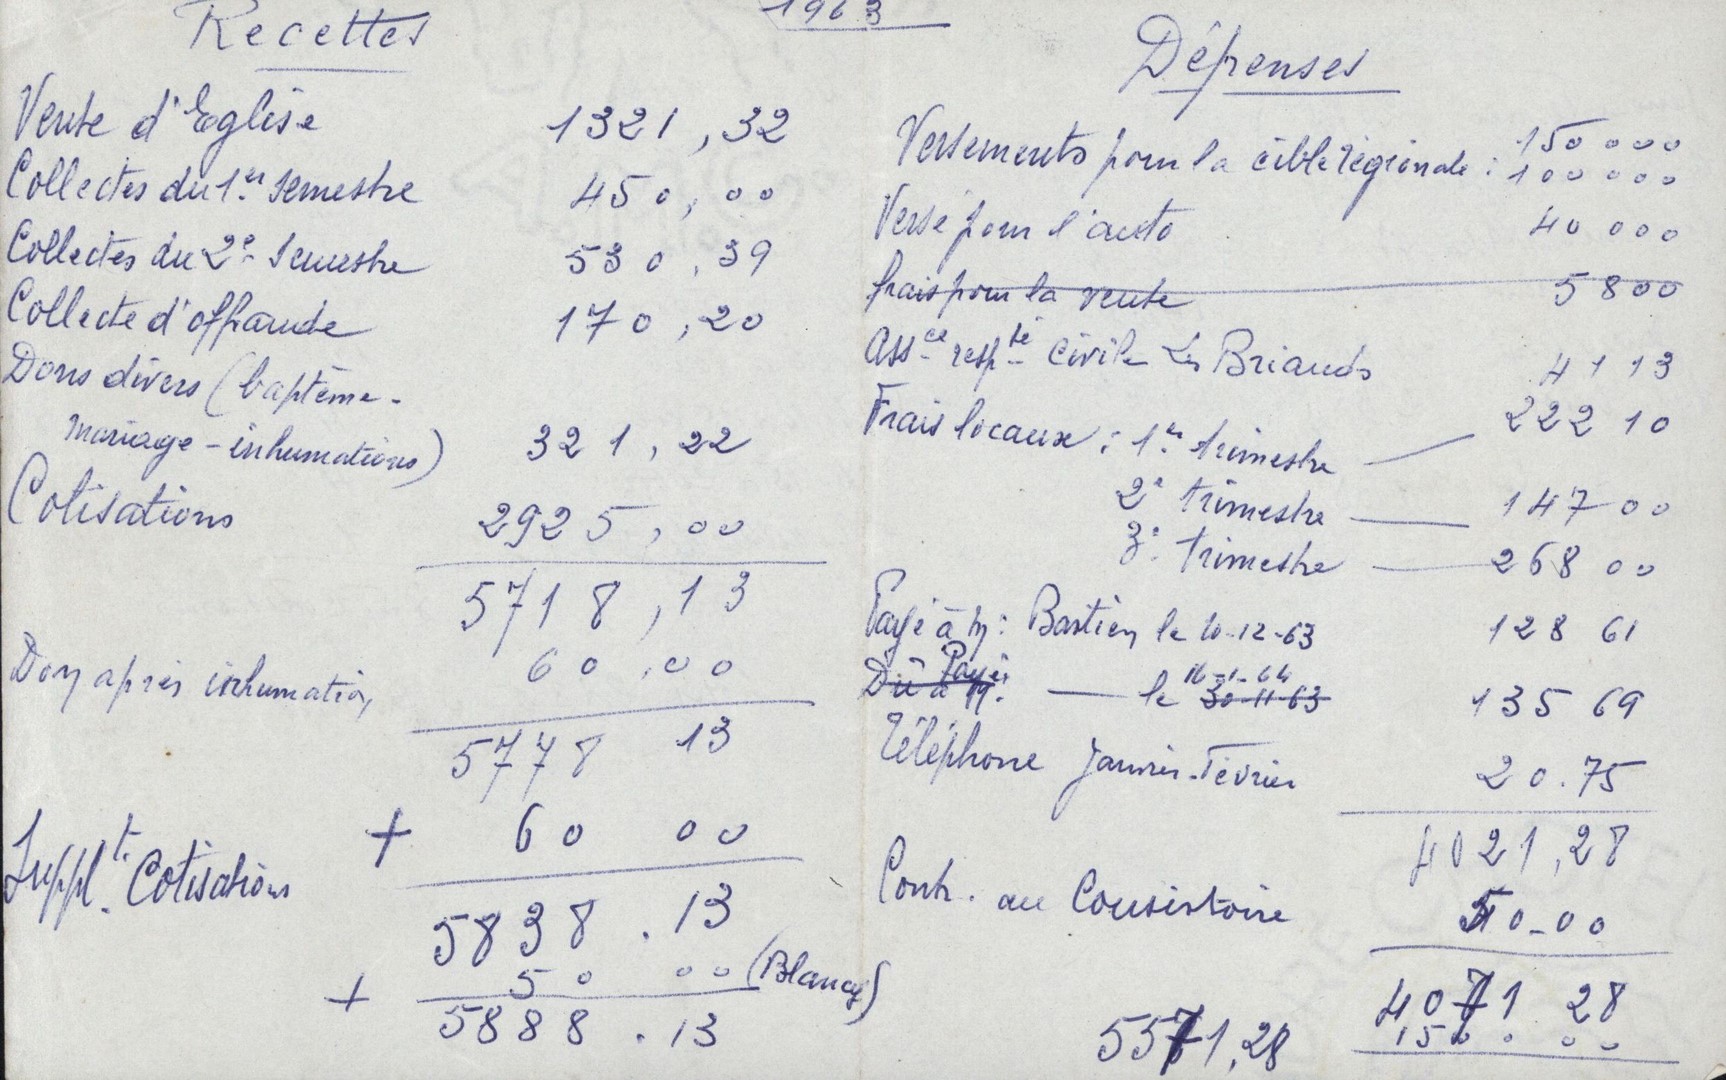 1963
Recettes
Vente d'Eglise 1321,32
Collectes du 1er semestre 450,00
Collectes du 2e semestre 530,39
Collecte d'offrande 170,20
Dons divers (baptême-
mariage-inhumations) 321,22
Cotisations 2925,00
5718,13
Don après inhumation 60,00
5778 13
Supplt. Cotisations + 60 00
5838.13
+ 50 00 (Blancy)
5888.13
Dépenses
Versements pour la cible régionale : 150 000
100 000
Versé pour l'auto 40 000
frais pour la vente 5800
Assce respté civile Les Briands 41 13
Frais locaux : 1er trimestre 222 10
2e trimestre 147 00
3e trimestre 268 00
Payé à M: Bastien le 10-12-63 128 61
Payé
16-1-64
Dû à M. le 30-11-63 135 69
Téléphone Janvier-Février 20.75
4021,28
Contr. au Consistoire 50-00
4071 28
1500 00
5571,28